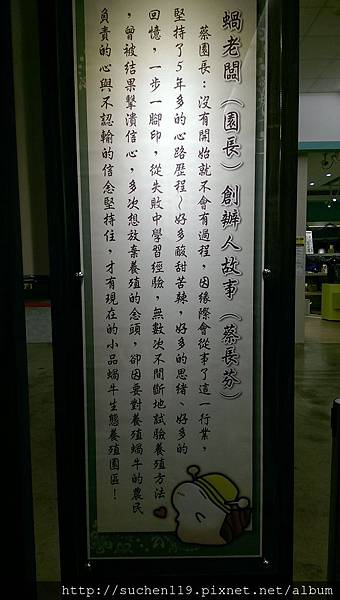 蝸老闆（園長）創辦人故事（蔡長芬）
蔡園長：沒有開始就不會有過程，因緣際會從事了這一行業，
堅持了5年多的心路歷程~好多酸甜苦辣，好多的思緒、好多的
回憶，一步一腳印，從失敗中學習經驗，無數次不間斷地試驗養殖方法
，曾被結果擊潰信心，多次想放棄養殖的念頭，卻因要對養殖蝸牛的農民
負責的心與不認輸的信念堅持住，才有現在的小品蝸牛生態養殖園區！
http://suchen119.pixnet.net/album